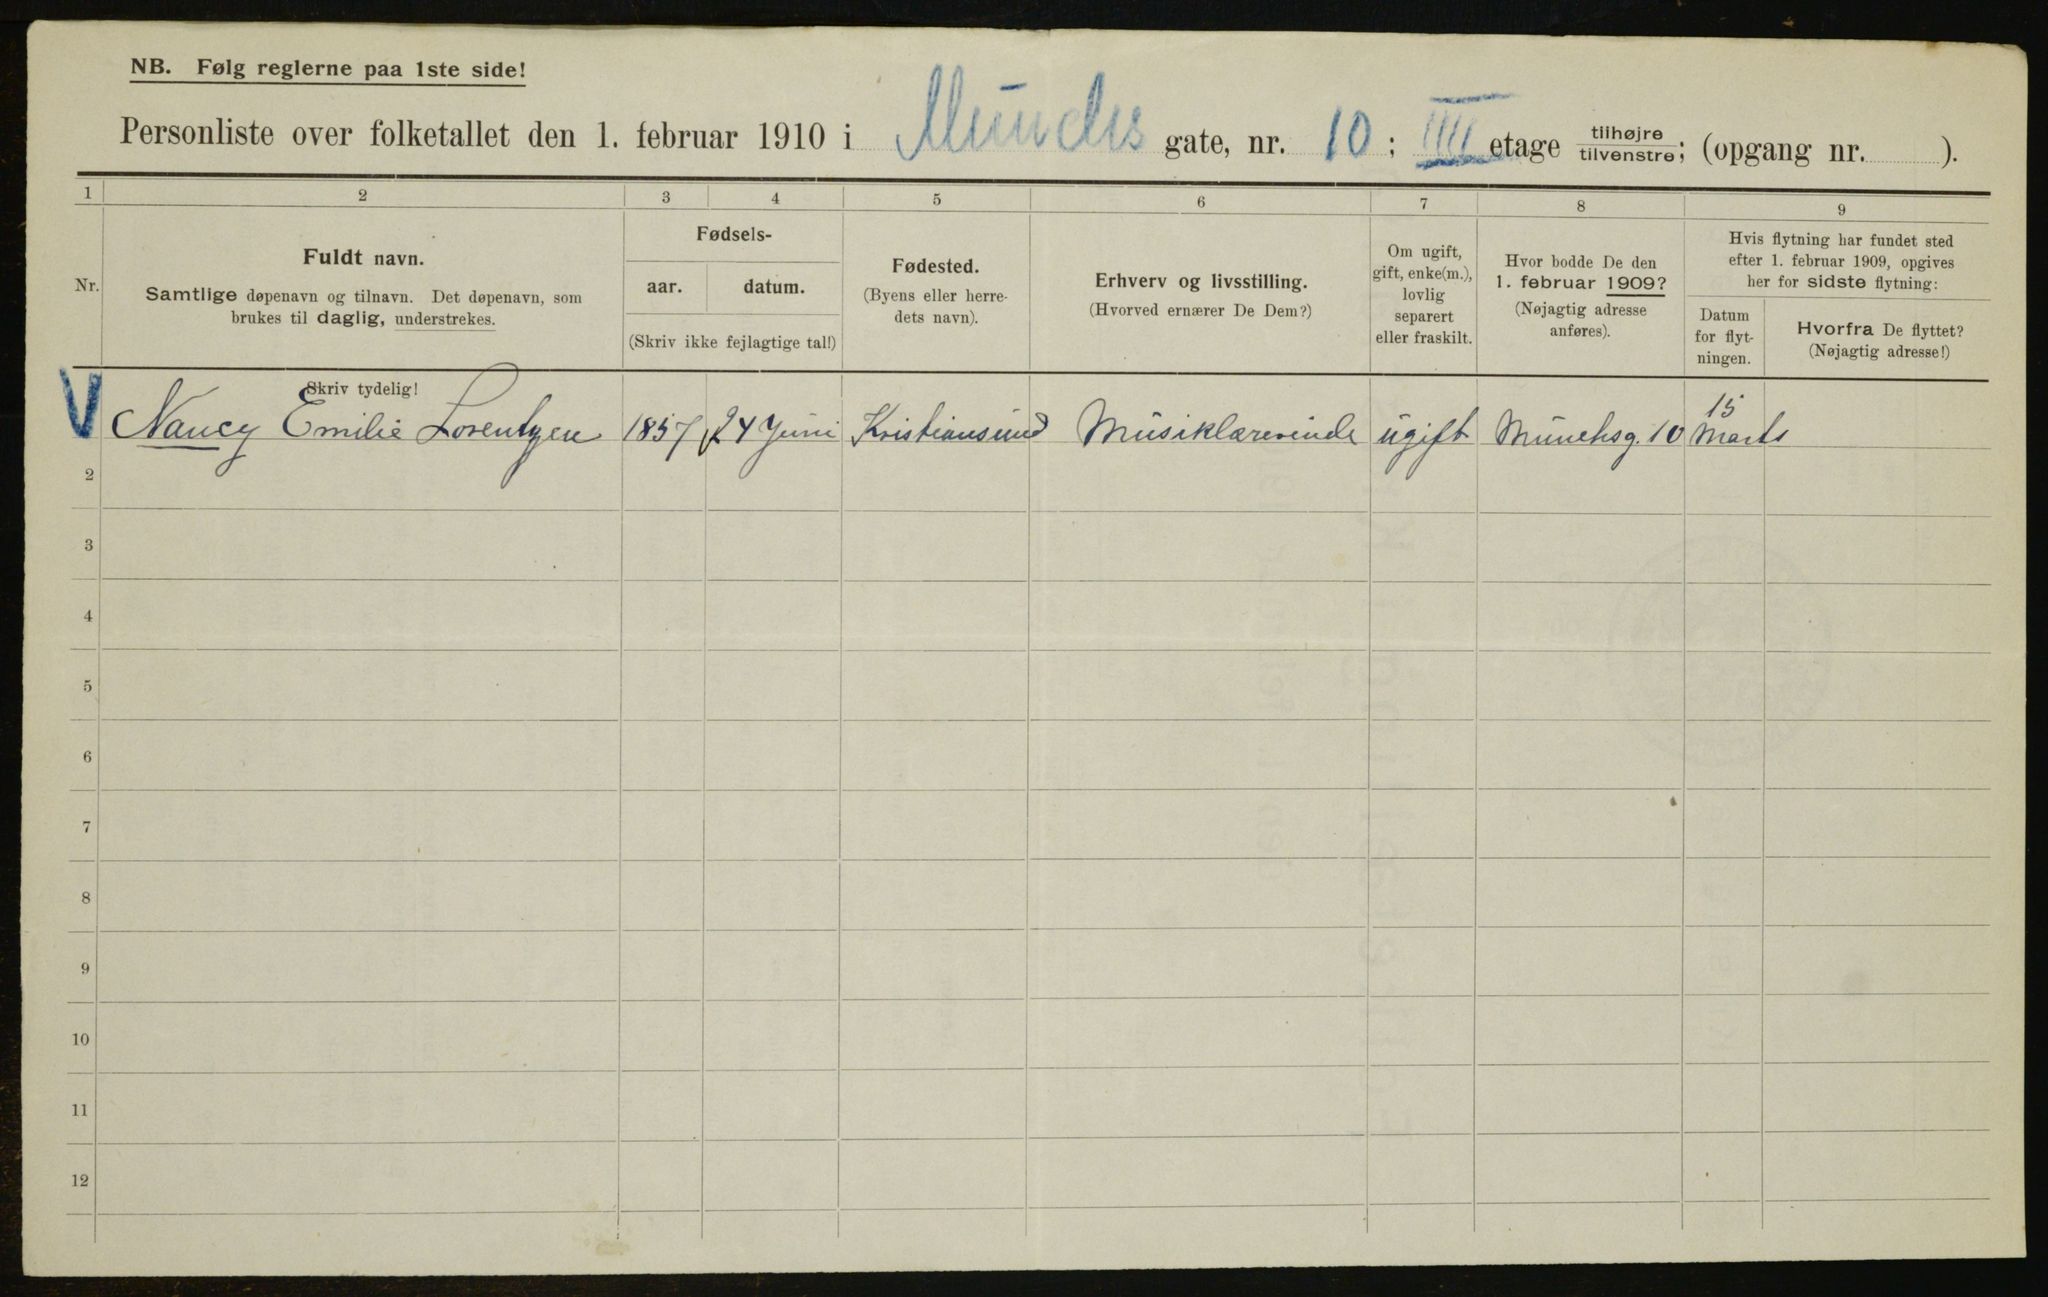 NB. Følg reglerne paa 1ste side!
Personliste over folketallet den 1. februar 1910 i Munchs gate, nr. 10; IIII etage tilhøjre tilvenstre; (opgang nr. ).
1 2 3 4 5 6 7 8 9
Nr.
Fuldt navn.
Samtlige døpenavn og tilnavn. Det døpenavn, som
brukes til daglig, understrekes.
Skriv tydelig!
Fødsels-
aar. datum.
(Skriv ikke fejlagtige tal!)
Fødested.
(Byens eller herre-
dets navn).
Erhverv og livsstilling.
(Hvorved ernærer De Dem?)
Om ugift,
gift, enke(m.),
lovlig
separert
eller fraskilt.
Hvor bodde De den
1. februar 1909?
(Nøjagtig adresse
anføres).
Hvis flytning har fundet sted
efter 1. februar 1909, opgives
her for sidste flytning:
Datum
for flyt-
ningen.
Hvorfra De flyttet?
(Nøjagtig adresse!)
V Nancy Emilie Lorentzen 1857 24 Juni Kristiansund Musiklærerinde ugift Munchsg. 10 15 Marts
2
3
4
5
6
7
8
9
10
11
12